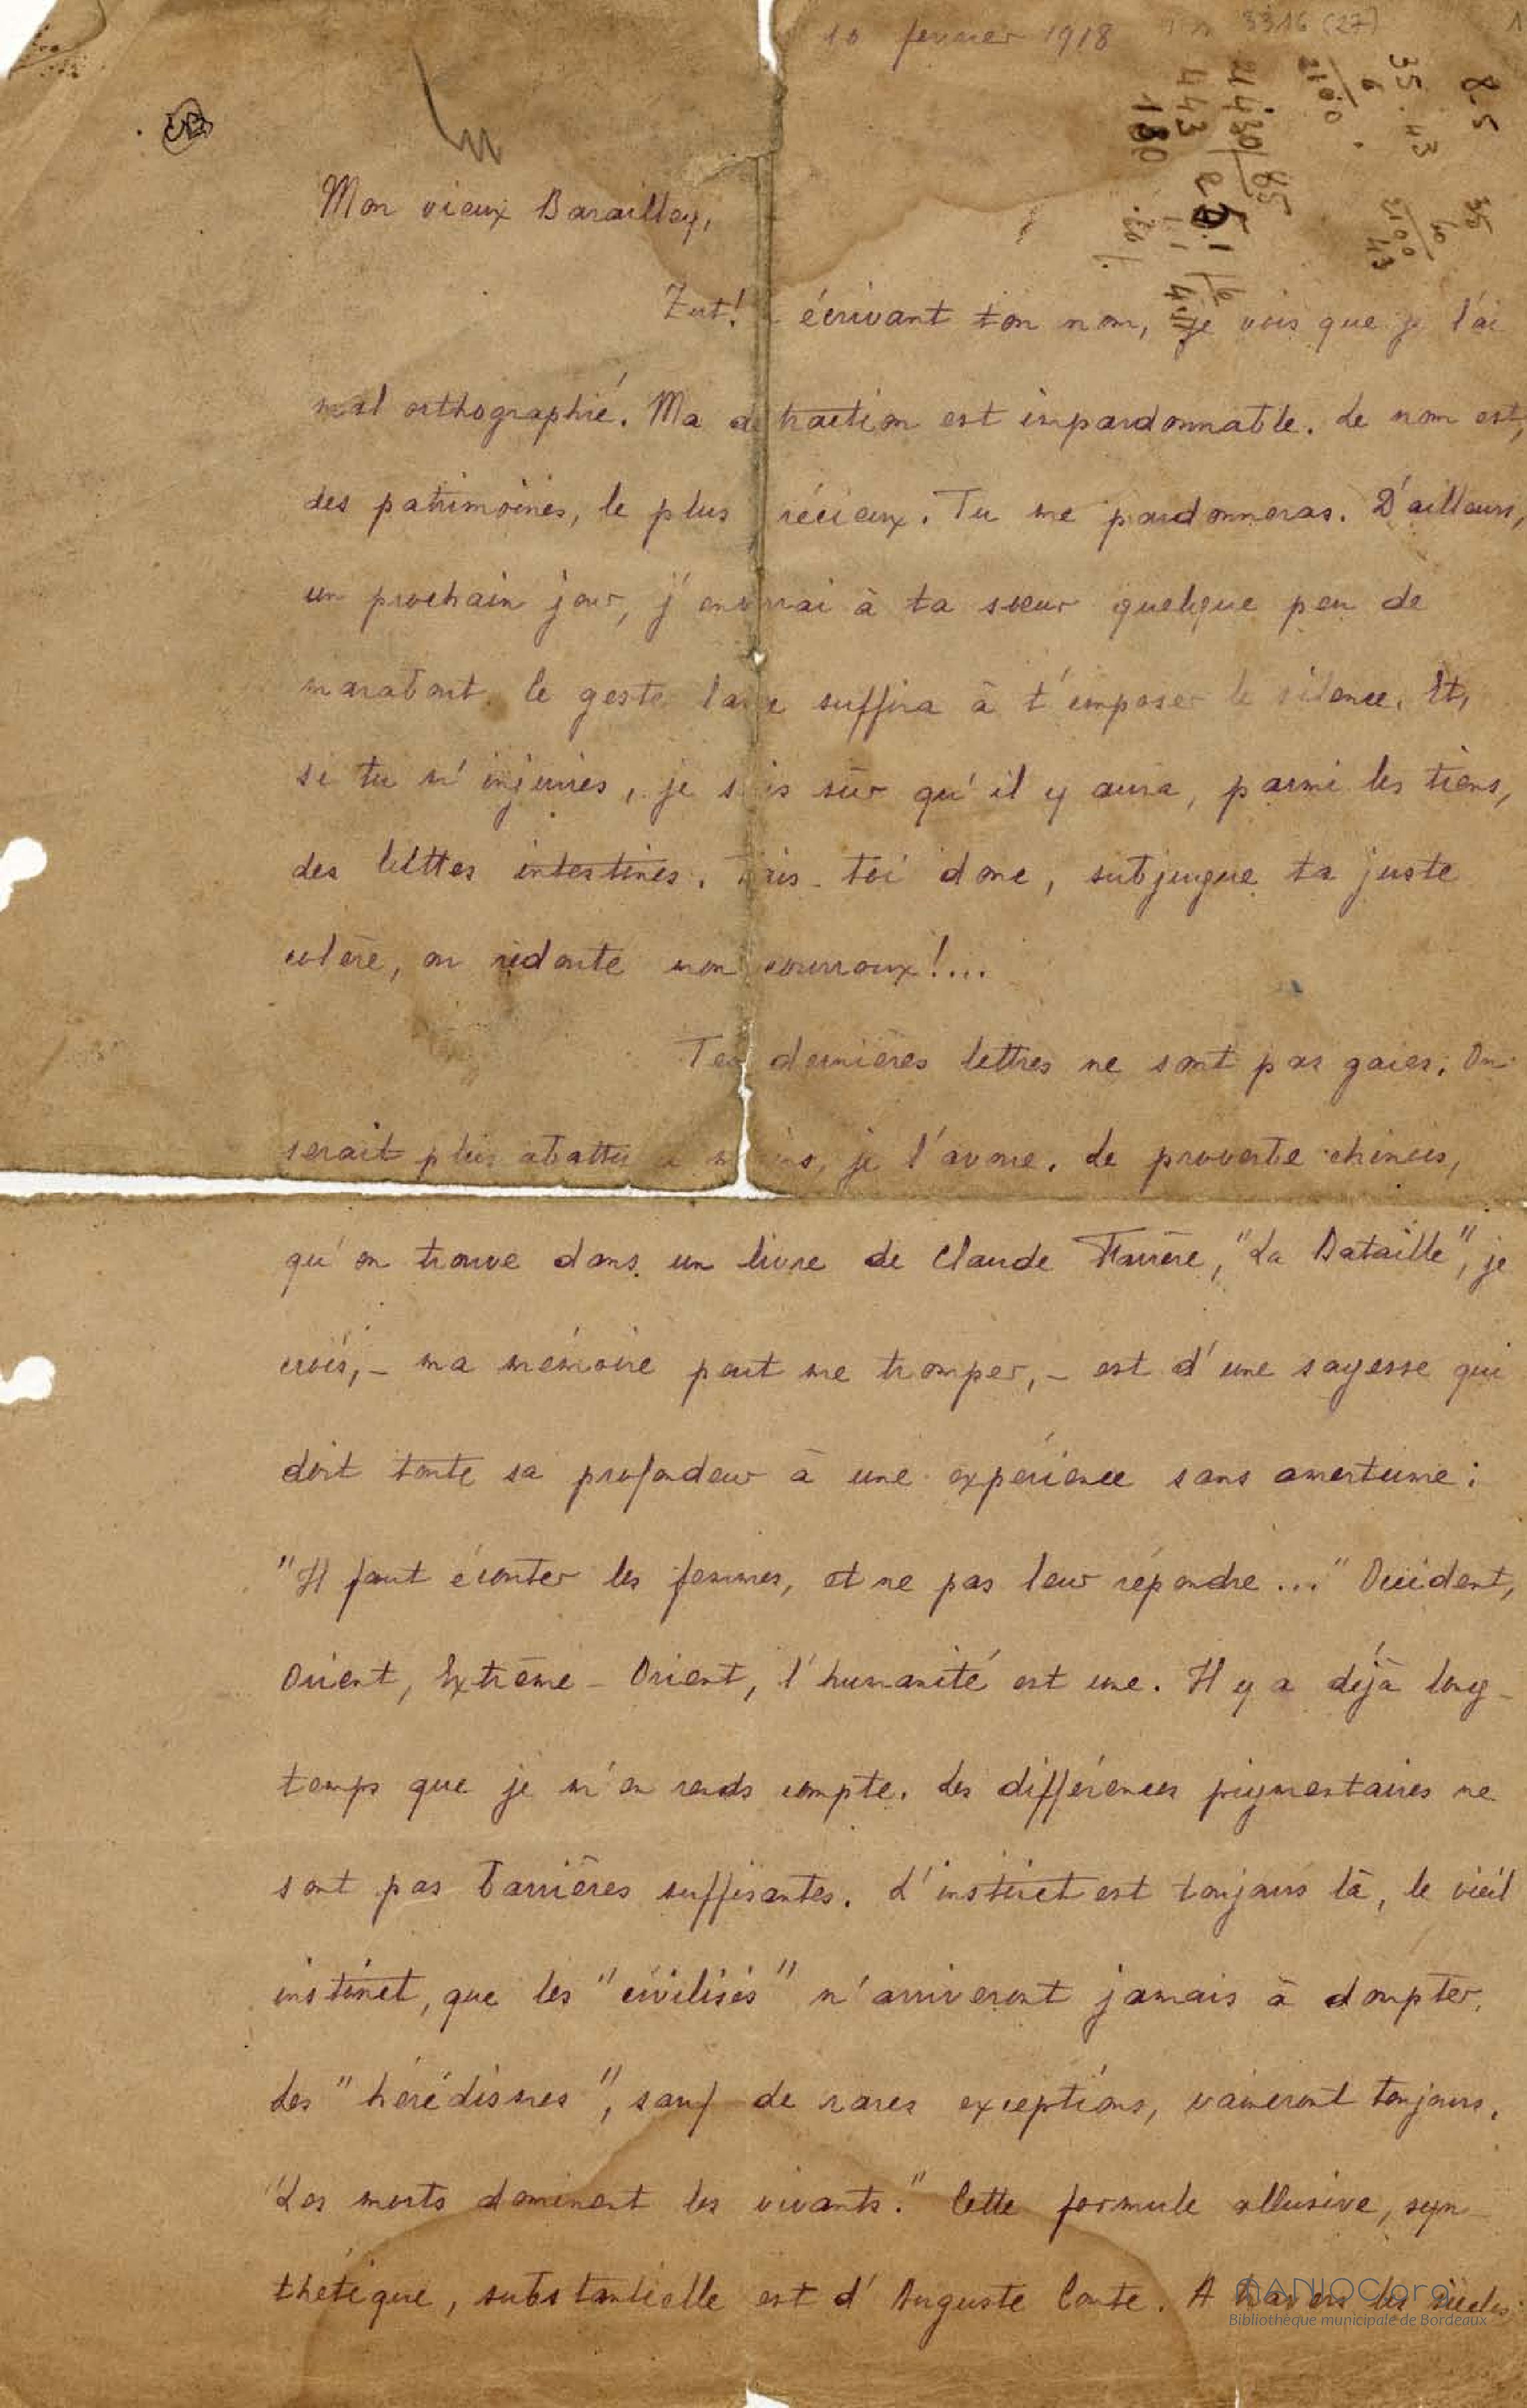 10 fevrier 1918
3316 (27)
1
8-5
35.43
6
2100
4430/85
443
180
35
60
2100
43
Mon vieux Barailley,
Zut! écrivant ton nom, je vois que je l'ai
mal orthographié. Ma d traction est impardonnable. Le nom est,
des patrimoines, le plus récieux. Tu me pardonneras. D'ailleurs,
un prochain jour, j'enverrai à ta sœur quelque peu de
marabout. le geste large suffira à t'imposer le silence. Et,
si tu m'injuries, je s is sûr qu'il y aura, parmi les tiens,
des luttes intestines. Tais-toi donc, subjugue ta juste
colère, on redoute mon courroux!...
Tes dernières lettres ne sont pas gaies; On
serait plus abattu à m ins, je l'avoue. Le proverbe chinois,
qu'on trouve dans un livre de Claude Farrère, "La Bataille", je
crois,- ma mémoire peut me tromper,- est d'une sagesse qui
doit toute sa profondeur à une expérience sans amertume:
"Il faut écouter les femmes, et ne pas leur répondre..." Occident,
Orient, Extrême-Orient, l'humanité est une. Il y a déjà long-
temps que je m'en rends compte. Les différences pigmentaires ne
sont pas barrières suffisantes. L'instinct est toujours là, le vieil
instinct, que les "civilisés" n'arriveront jamais à dompter.
Les "hérédismes", sauf de rares exceptions, vaincront toujours.
"Les morts dominent les vivants." Cette formule allusive, syn-
thétique, substantielle est d'Auguste Comte. A travers les siècles
MANIOC.org
Bibliothèque municipale de Bordeaux